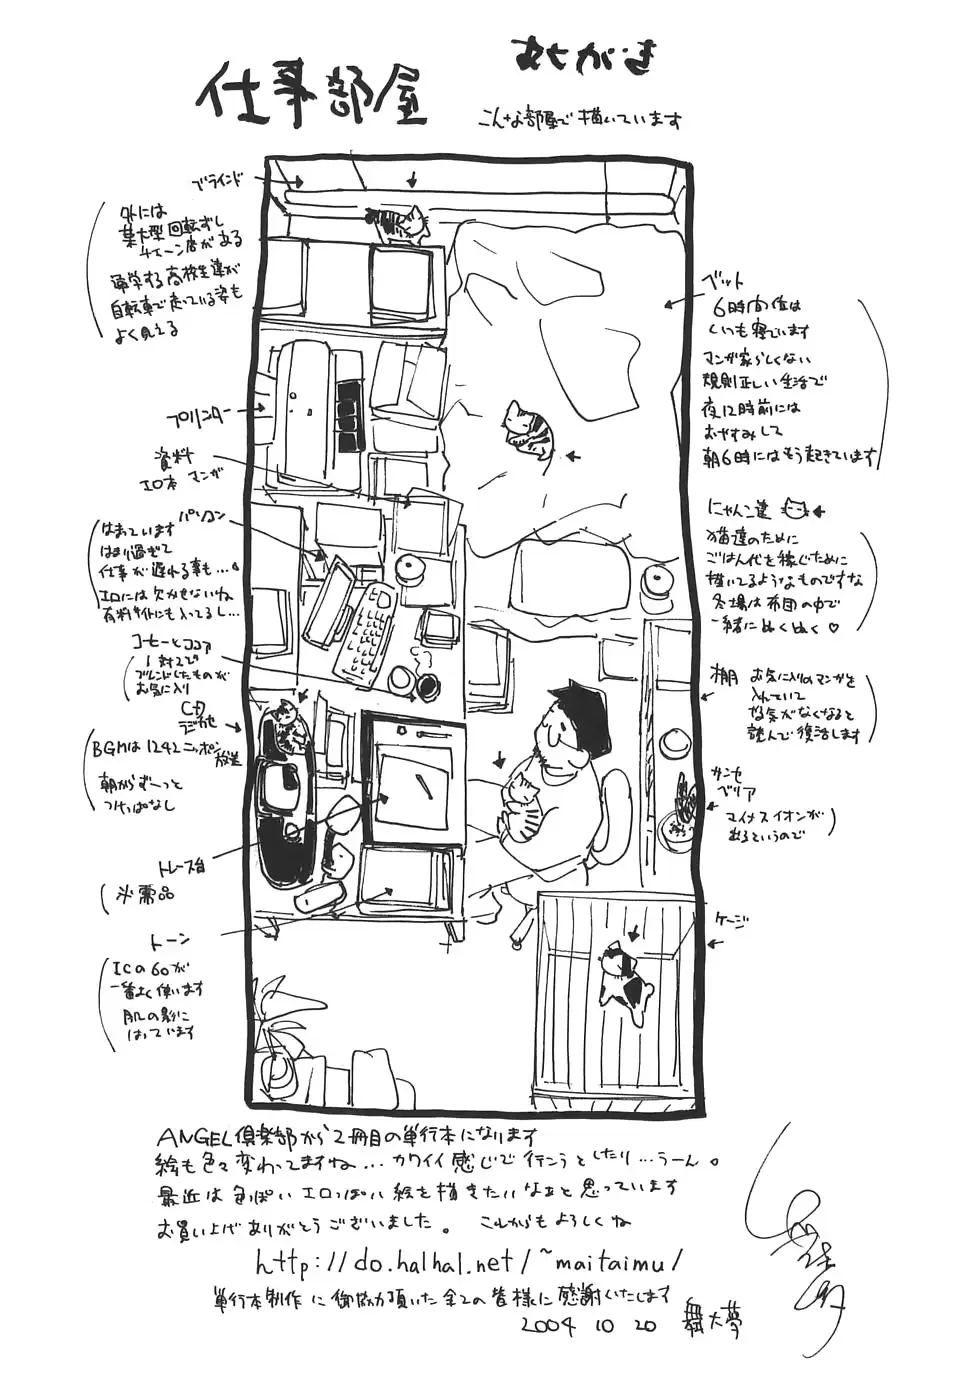 あとがき
仕事部屋
こんな部屋で描いています
ブラインド
外には
某大型回転ずし
チェーン店がある
通学する高校生達が
自転車で走っている姿も
よく見える
プリンター
資料
エロ本 マンガ
パソコン
はまっています
はまり過ぎて
仕事が遅れる事も…。
エロには欠かせないね
有料サイトにも入ってるし…
コーヒーとココア
1対2で
ブレンドしたものが
お気に入り
CD
ラジカセ
BGMは1242ニッポン
放送
朝からずーっと
つけっぱなし
トレース台
必需品
トーン
ICの60が
一番よく使います
肌の影に
はっています
ベット
6時間位は
いつも寝ています
マンガ家らしくない
規則正しい生活で
夜12時前には
おやすみして
朝6時にはもう起きています
にゃんこ達
猫達のために
ごはん代を稼ぐために
描いてるようなものですな
冬場は布団の中で
一緒にぬくぬく♡
棚 お気に入りのマンガを
入れていて
やる気がなくなると
読んで復活します
サンセ
ベリア
マイナスイオンが
出るというので
ケージ
ANGEL倶楽部から2冊目の単行本になります
絵も色々変わってますね…カワイイ感じで行こうとしたり…うーん。
最近は色っぽいエロっぽい絵も描きたいなぁと思っています
お買い上げありがとうございました。 これからもよろしくね
http://do.halhal.net/~maitaimu/
単行本制作に御協力頂いた全ての皆様に感謝いたします
2004 10 20 舞大夢